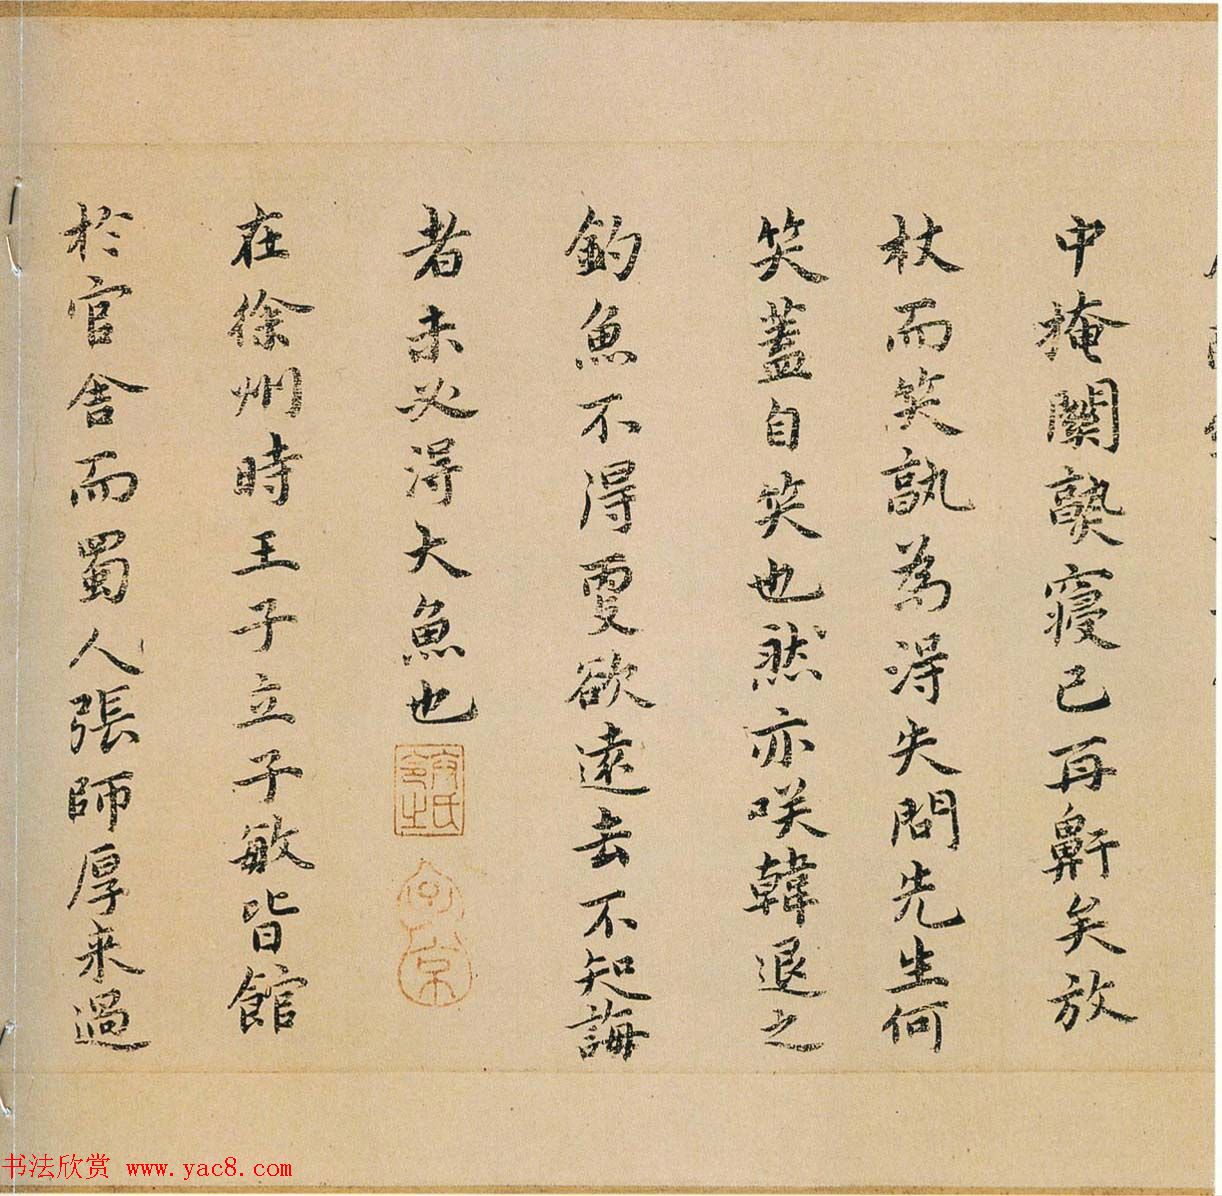 中掩關熟寢已再鼾矣放
杖而笑孰為得失問先生何
笑蓋自笑也然亦咲韓退之
釣魚不得更欲遠去不知誨
者未必得大魚也
在徐州時王子立子敏皆館
於官舍而蜀人張師厚来過
书法欣赏 www.yac8.com